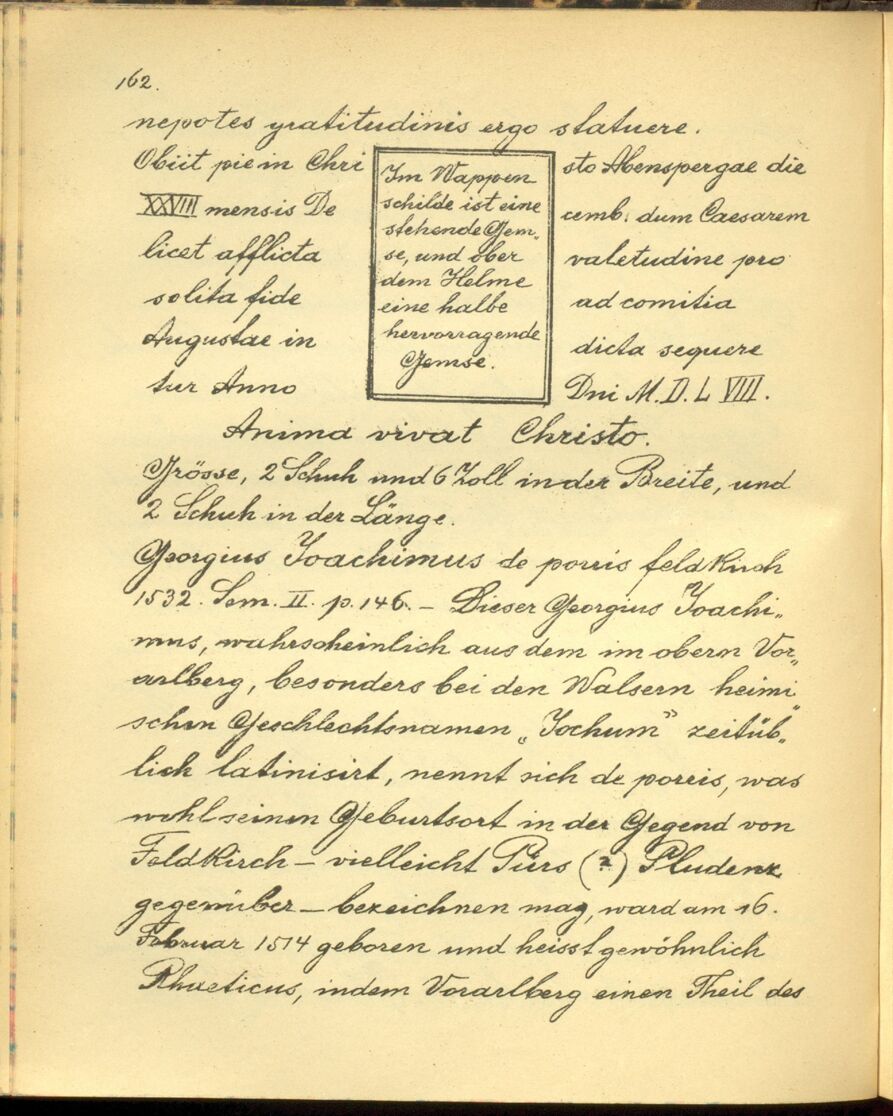 162.
nepotes gratitudinis ergo statuere.
Obiit pie in Chri
XXVIII mensis De
licet afflicta
solita fide
Augustae in
tur Anno
Im Wappen
schilde ist eine
stehende Gem„
se, und ober
dem Helme
eine halbe
hervorragende
Gemse.
sto Abenspergae die
cemb. dum Caesarem
valetudine pro
ad comitia
dicta sequere
Dni M. D. L VIII.
Anima vivat Christo.
Grösse, 2 Schuh und 6 Zoll in der Breite, und
2 Schuh in der Länge.
Georgius Joachimus de porris feldkirch
1532. Sem. II. p. 146. – Dieser Georgius Joachi„
mus, wahrscheinlich aus dem im obern Vor„
arlberg, besonders bei den Walsern heimi„
schen Geschlechtsnamen „Jochum” zeitüb„
lich latinisirt, nennt sich de porris, was
wohl seinen Geburtsort in der Gegend von
Feldkirch – vielleicht Pürs (?) Pludenz
gegenüber – bezeichnen mag, ward am 16.
Februar 1514 geboren und heisst gewöhnlich
Rhaeticus, indem Vorarlberg einen Theil des